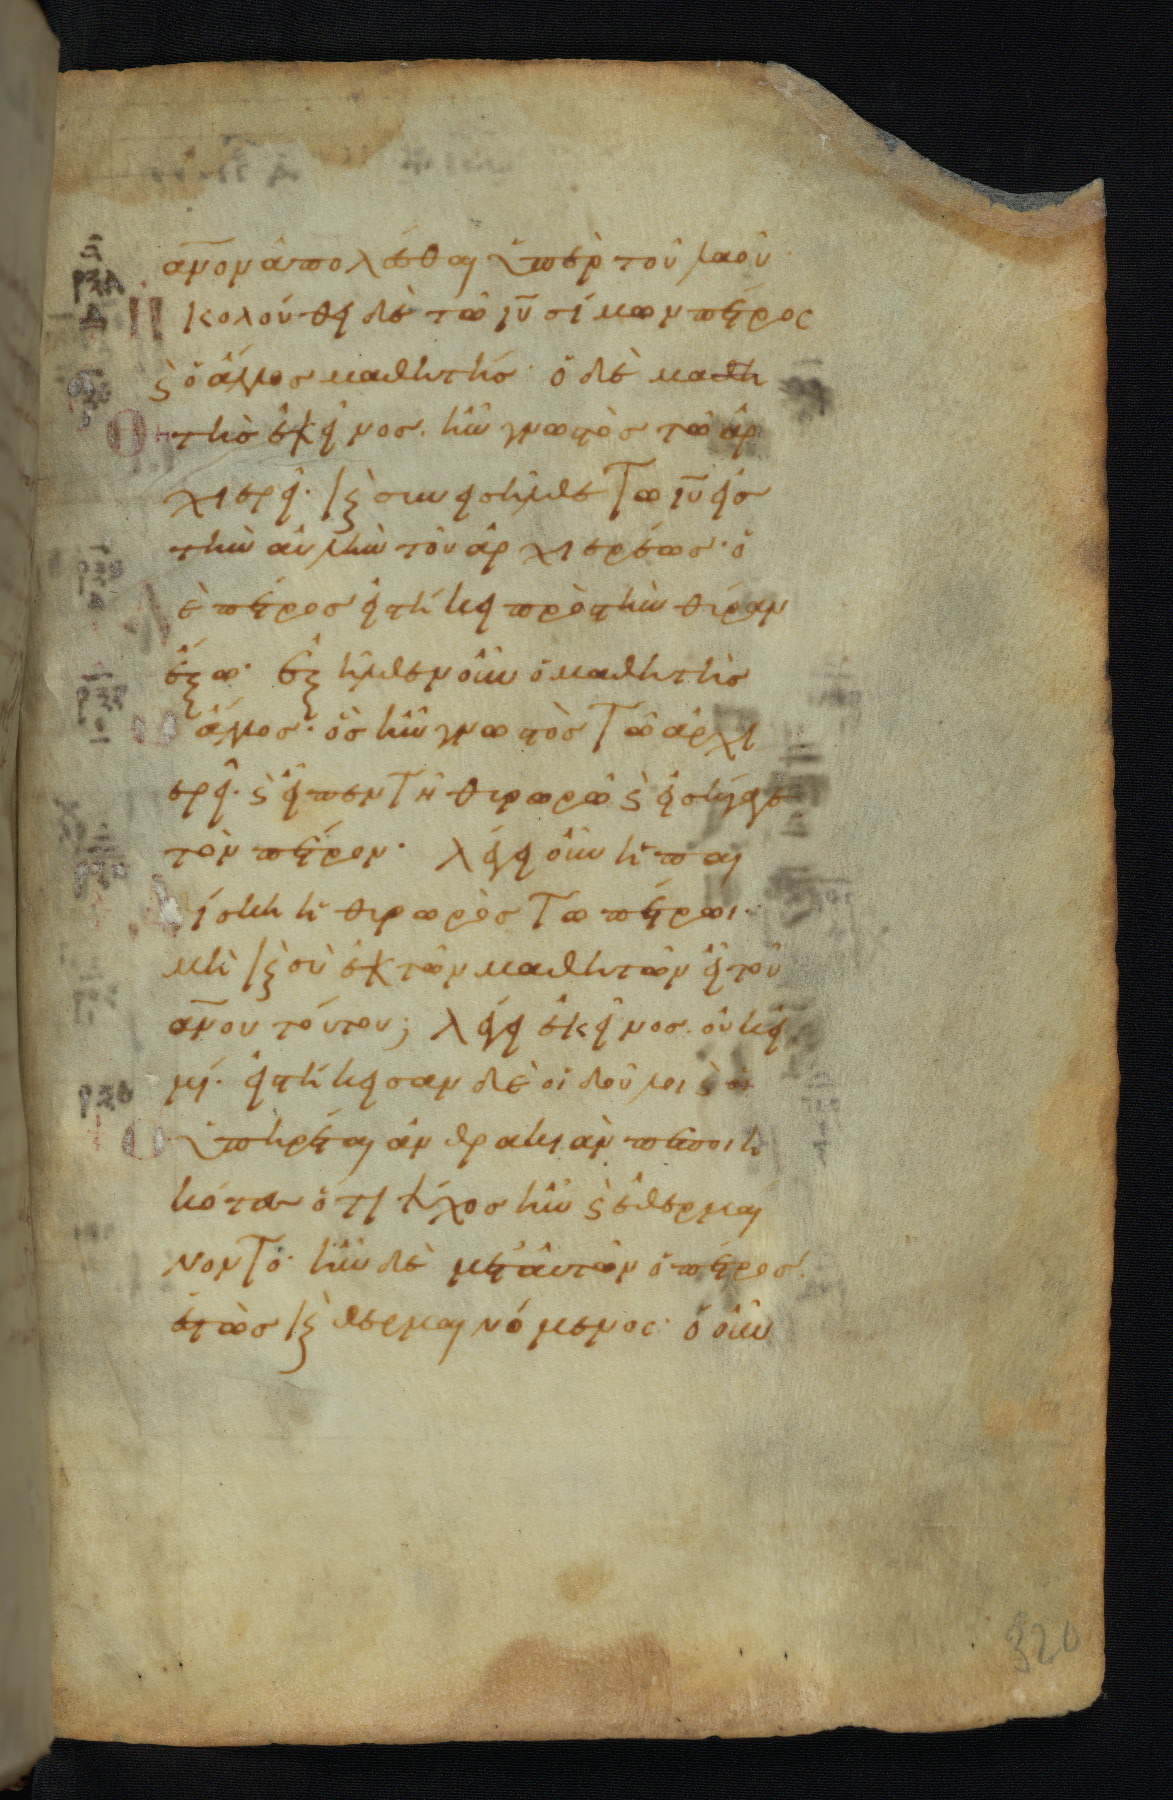 ἀν̅ον ἀπολέσθαι ὑπὲρ τοῦ λαοῦ
Ἠκολούθει δὲ τῶ ἰυ̅ σίμων πέτρος
ϛ ὁ ἄλλος μαθητής· ὁ δὲ μαθη
τὴς ἐκεῖνος. ἦν γνωτὸς τῶ ἀρ
χιερεῖ· καὶ συνεισῆλθε τῶ ἰυ̅ εἰς
τὴν αὐλὴν τοῦ ἀρχιερέως· ὁ
δὲ πέτρος εἱστήκει πρὸς τὴν θύραν
ἔξω· ἐξῆλθεν οὖν ὁ μαθητὴς
ὁ ἄλλος· ὃς ἦν γνωτὸς τῶ ἀρχι
ερεῖ· ϛ εἶπεν τῆ θυρωρῶ ϛ εἰσήγαγε
τὸν πέτρον· λέγει οὖν ἡ παι
δίσκη ἡ θυρωρὸς τῶ πέτρωι·
μὴ καὶ σὺ ἐκ τῶν μαθητῶν εἶ τοῦ
ἀν̅ου τούτου; λέγει ἐκεῖνος. οὐκ εἰ
μί· εἱστήκεισαν δὲ οἱ δοῦλοι ϛ οἱ
ὑπηρέται ἀνθρακιὰν πεποιη
κότες ὅτι ψύχος ἦν ϛ ἐθερμαί
νοντο· ἦν δὲ μετ' αὐτῶν ὁ πέτρος
ἑστὼς καὶ θερμαινόμενος· ὁ οὖν
320